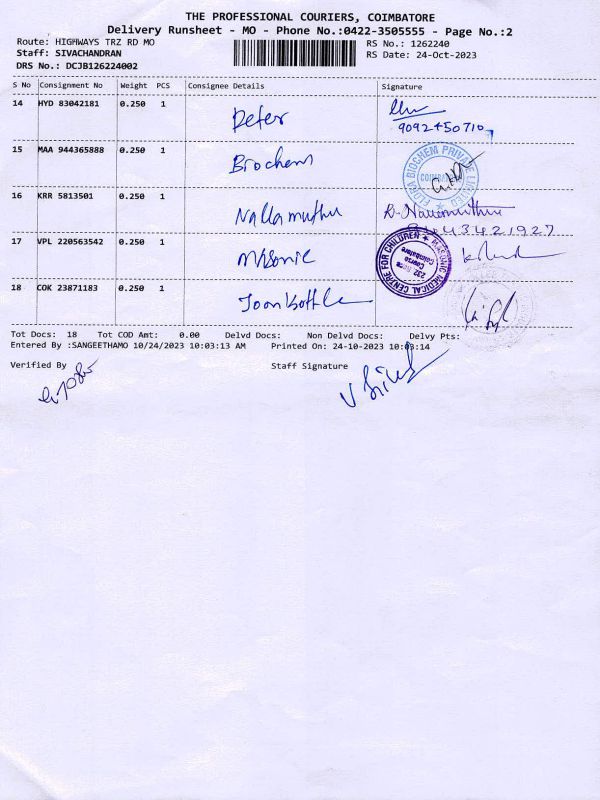 THE PROFESSIONAL COURIERS, COIMBATORE
Delivery Runsheet - MO - Phone No.:0422-3505555 - Page No.:2
Route: HIGHWAYS TRZ RD MO RS No.: 1262240
Staff: SIVACHANDRAN RS Date: 24-Oct-2023
DRS No.: DCJB126224002
S No Consignment No Weight PCS Consignee Details Signature
14 HYD 83042181 0.250 1 Peter
9092450710
15 MAA 944365888 0.250 1 Biochem
FLORA BIOCHEM PRIVATE LIMITED
COIMBATORE
16 KRR 5813501 0.250 1 Nallamuthu
17 VPL 220563542 0.250 1 Masonic
MASONIC MEDICAL CENTRE FOR CHILDREN
232, Race
Course
Coimbatore
18 COK 23871183 0.250 1
Tot Docs: 18 Tot COD Amt: 0.00 Delvd Docs: Non Delvd Docs: Delvy Pts:
Entered By :SANGEETHAMO 10/24/2023 10:03:13 AM Printed On: 24-10-2023 10:03:14
Verified By Staff Signature